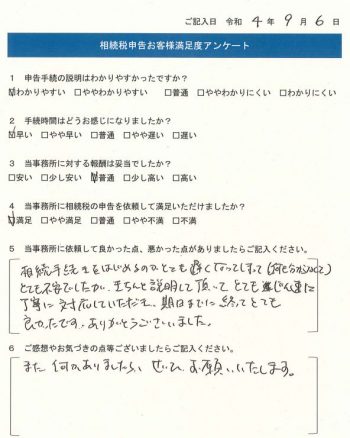 ご記入日 令和 4 年 9 月 6 日
相続税申告お客様満足度アンケート
1 申告手続の説明はわかりやすかったですか?
☑わかりやすい □ややわかりやすい □普通 □ややわかりにくい □わかりにくい
2 手続時間はどうお感じになりましたか?
☑早い □やや早い □普通 □やや遅い □遅い
3 当事務所に対する報酬は妥当でしたか?
□安い □少し安い ☑普通 □少し高い □高い
4 当事務所に相続税の申告を依頼して満足いただけましたか?
☑満足 □やや満足 □普通 □やや不満 □不満
5 当事務所に依頼して良かった点、悪かった点がありましたらご記入ください。
相続手続きをはじめるのがとても遅くなってしまって
とても不安でしたが、きちんと説明して頂って、とても
丁寧に対応していただき、期日までに終ってとても
良かったです。ありがとうございました。
6 ご感想やお気づきの点等ございましたらご記入ください。
また何かありましたら、ぜひお願いいたします。